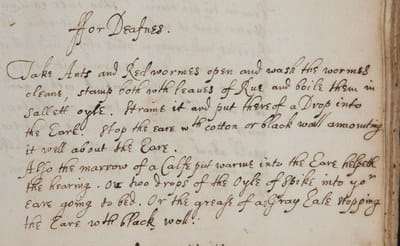 ffor Deafnes.
Take Ants and Redwormes open and wash the wormes
cleane, stamp both wth leaves of Rue and boile them in
sallett oyle. Straine it and put thereof a Drop into
the Eare. Stop the eare wth cotton or black wooll annointing
it well about the Eare.
Also the marrow of a Calfe put warme into the Eare helpeth
the hearing. Or two drops of the Oyle of Spike into yor
eare going to bed. Or the grease of a Gray Eale stopping
the Eare wth black wooll.